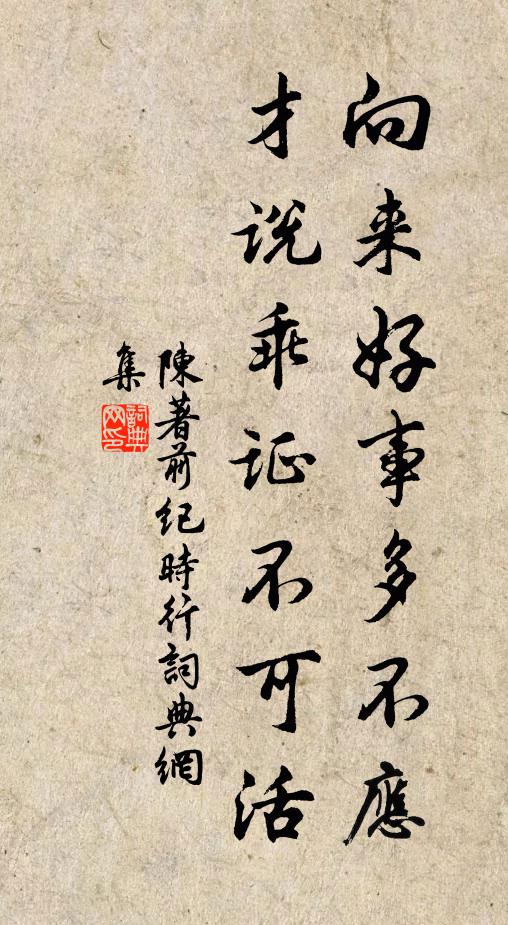 向来好事多不應
才说乖证不可活
陳著前纪時行詞典網
集
詞典网印